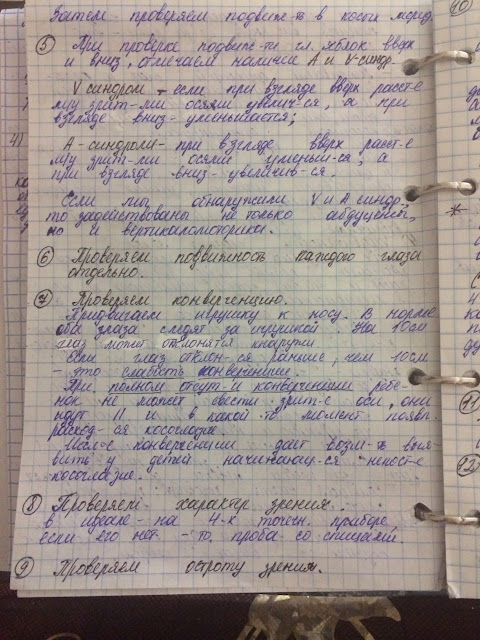 Затем проверяем подвиж-ть в косых мерид.
5 При проверке подвиж-ти гл. яблок вверх
и вниз, отмечаем наличие А и V-синдр.
V синдром - если при взгляде вверх расст-е
м/у зрит-ми осями увелич-ся, а при
взгляде вниз - уменьшается;
А-синдром - при взгляде вверх расст-е
м/у зрит-ми осями уменьш-ся, а
при взгляде вниз - увеличив-ся.
Если мы обнаружили V и А синдр.
то задействованы не только абдуценты,
но и вертикаломоторика.
6 Проверяем подвижность каждого глаза
отдельно.
7 Проверяем конвергенцию.
Придвигаем игрушку к носу. В норме
оба глаза следят за игрушкой. На 10см
глаз может отклонятся кнаружи
Если глаз отклон-ся раньше, чем 10см
- это слабость конвергенции.
При полном отсут-и конвергенции ребе-
нок не может свести зрит-е оси, они
идут II и в какой-то момент появл.
расход-ся косоглазие.
конвергенции дает возм-ть выя-
вить у детей начинающ-ся непост-е
косоглазие.
8 Проверяем характер зрения.
в идеале - на 4-х точечн. приборе,
если его нет - то, проба со спицами.
9 Проверяем остроту зрения.
4)
*
10
11
12